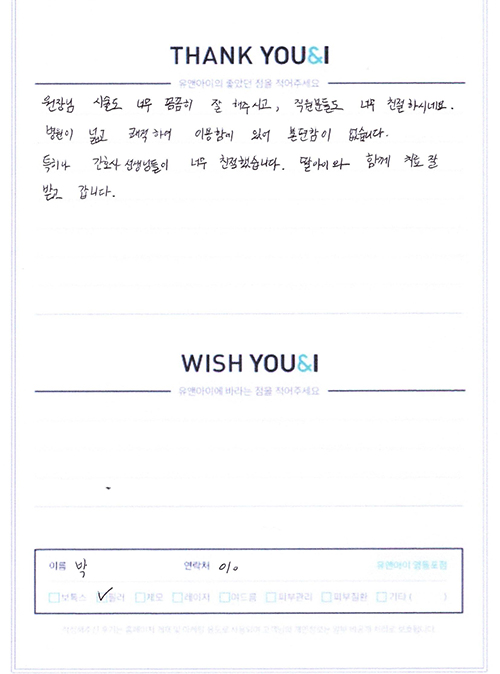 THANK YOU&I
유앤아이의 좋았던 점을 적어주세요
원장님 시술도 너무 꼼꼼히 잘 해주시고, 직원분들도 너무 친절하시네요.
병원이 넓고 쾌적하여 이용함에 있어 불편함이 없습니다.
특히나 간호사 선생님들이 너무 친절했습니다. 딸아이와 함께 치료 잘
받고 갑니다.
WISH YOU&I
유앤아이에 바라는 점을 적어주세요
이름 박 연락처 010 유앤아이 영등포점
보톡스 필러 제모 레이저 여드름 피부관리 피부질환 기타 ( )